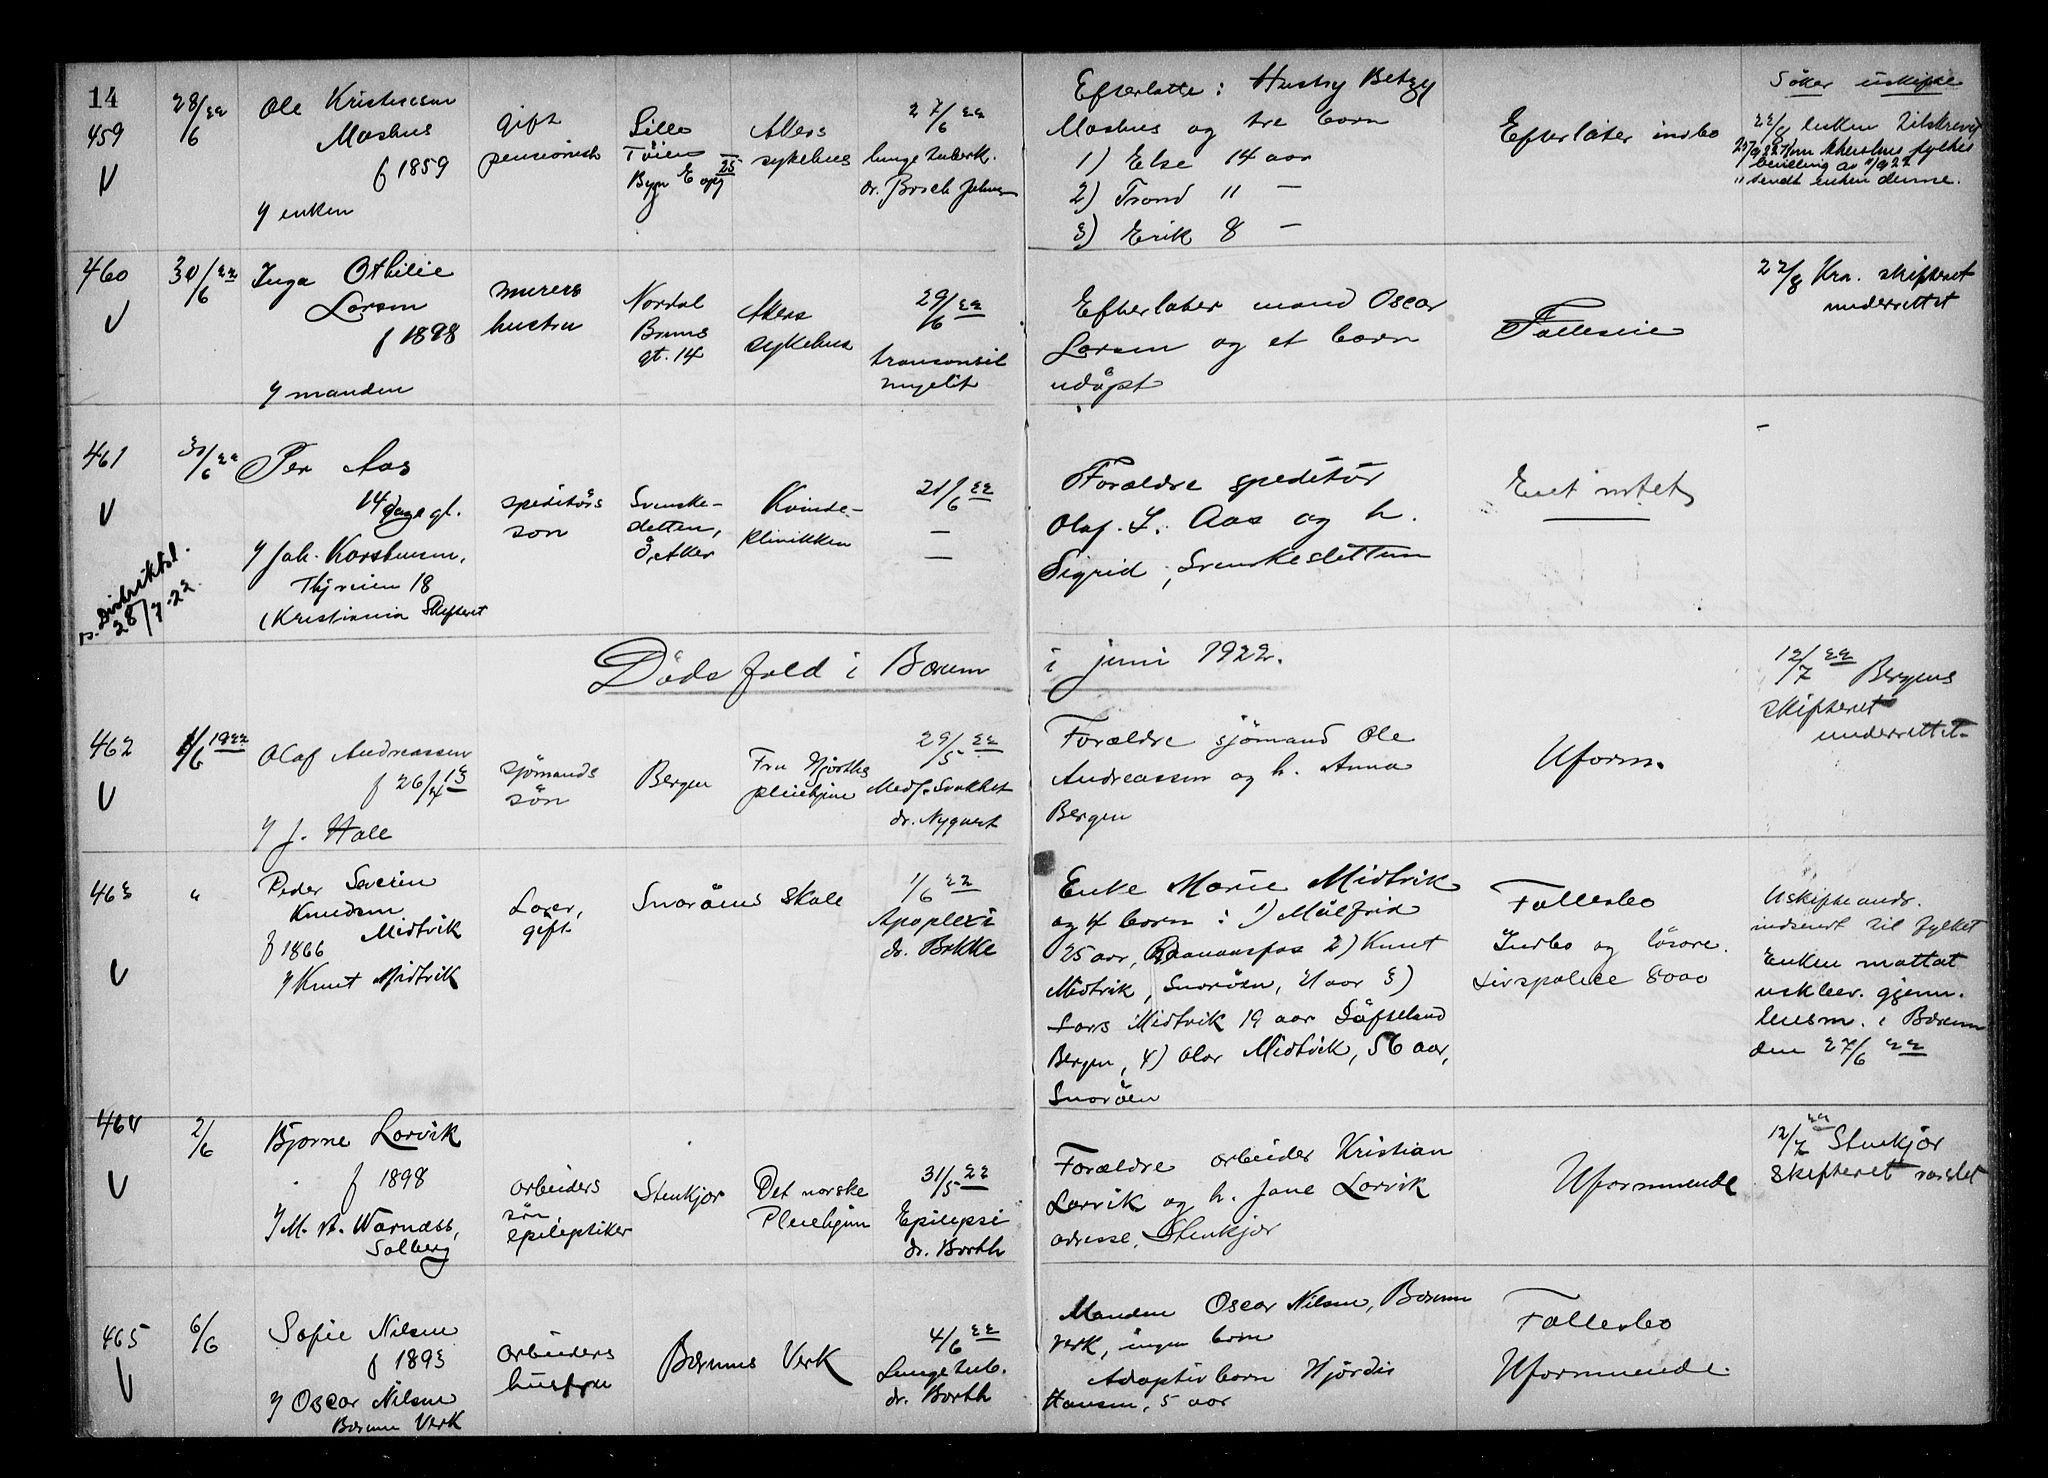 14
459
28/6 22
Ole Kristensen
Moshus
f 1859
/ enken
gift
pensionist
Lille
Töien
Byg E opg 25
Akers
sykehus
27/6 22
lungetuberk.
dr. Broch Johns
Efterlatte: Hustry Betzy
Moshus og tre born
1) Else 14 aar
2) Trond 11 —
3) Erik 8 —
Efterlater indbo
Söker uskifte
22/8 enken tilskrevet
Akershus fylkes
bevilling av 11/9 22
" sendt enken denne.
460
30/6 22
Inga Othilie
Larsen
f 1898
/ manden
murers
hustru
Nordal
Bruns
gt. 14
Akers
sykehus
29/6 22
myelit
Efterlater mand Oscar
Larsen og et barn
udöpt
Fælleseie
22/8 Kra. skifteret
underrettet
461
30/6 22
Per Aas
14 dage gl.
/ Joh. Karstensen,
Thjmeien 18
(Kristiania Skifteret
n. Distriktsl.
28/7-22.
speditörs
son
Svenske-
sletten,
Ö. Aker
Kvinde-
klinikken
21/6 22
—
—
Forældre speditör
Olaf. L. Aas og h.
Sigrid, Svenskesletten
Eiet intet
—
Dödsfald i Bærum
i juni 1922.
462
1/6 1922
Olaf Andreassen
f 26/4 13
/ J. Hall
sjömands
sön
Bergen
Fru Hjorths
pleiehjem
29/5 22
Medf. Svakhet
dr. Nyquist
Forældre sjömand Ole
Andreassen og h. Anna
Bergen
Uform.
12/7 22 Bergens
skifteret
underrettet
463
"
Peder Severin
Knudsen
Midtvik
f 1866
/ Knut Midtvik
Lærer,
gift
Snaröens skole
1/6 22
Apoplexi
dr. Bakke
Enke Marie Midtvik
og 4 born: 1) Målfrid
25 aar, Raanaasfos 2) Knut
Midtvik, Snaröen, 21 aar 3)
Lars Midtvik 19 aar Söfteland
Bergen, 4) Olav Midtvik, 56 aar,
Snaröen
Fællesbo
Indbo og lösöre.
Livspolice 8000
Uskifteandr.
indsendt til fylket
Enken mottat
uskbev. gjenn.
lensm. i Bærum
den 27/6 22
464
2/6
Bjarne Lorvik
f 1898
/ M. A. Warnæss,
Solberg
arbeiders
sön,
epileptiker
Stenkjær
Det norske
Pleiehjem
31/5 22
Epilepsi
dr. Barth
Forældre arbeider Kristian
Lorvik og h. Jane Lorvik
adresse, Stenkjær
Uformuende
12/7 22 Stenkjær
Skifteret varslet
465
6/6
Sofie Nilsen
f 1893
/ Oscar Nilsen
Bærums Verk
arbeiders
husfru
Bærums Verk
4/6 22
Lungetub.
dr. Barth
Manden Oscar Nilsen, Bærum
verk, ingen born
Adoptivbarn Hjördis
Hansen, 5 aar
Fællesbo
Uformuende.